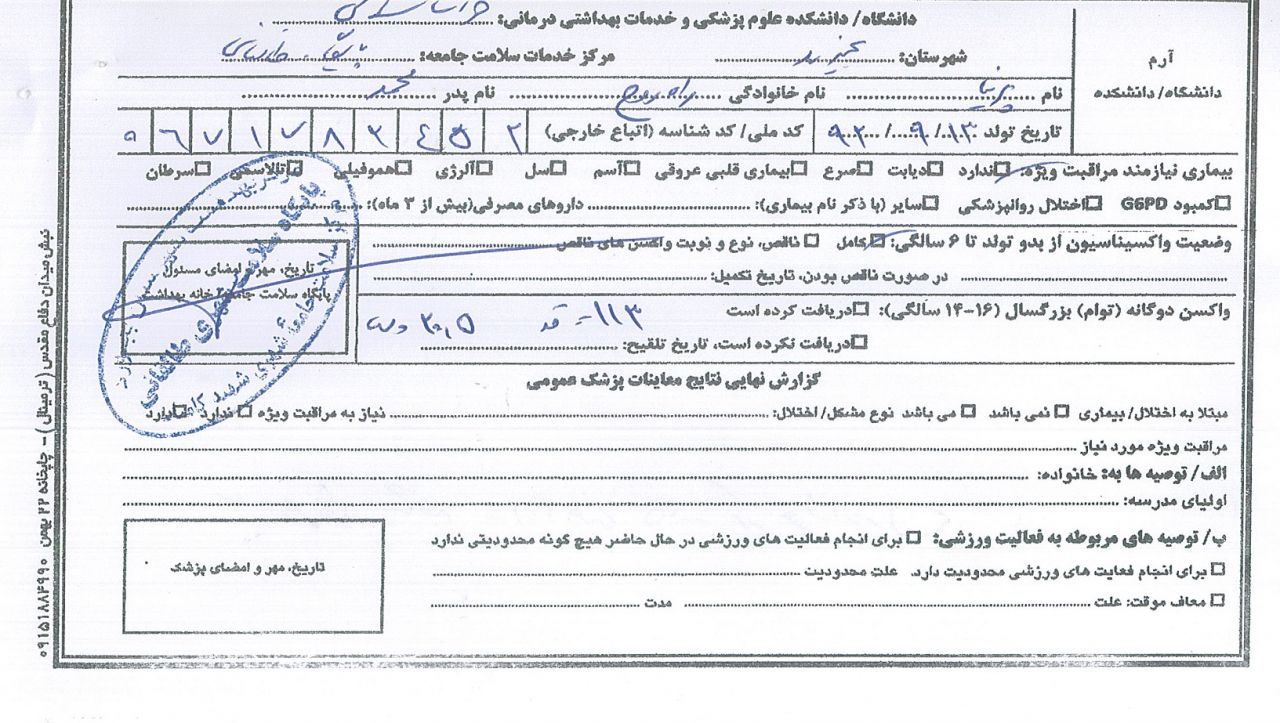 دانشگاه/ دانشکده علوم پزشکی و خدمات بهداشتی درمانی:
آرم
دانشگاه/ دانشکده
شهرستان: مرکز خدمات سلامت جامعه:
نام نام خانوادگی نام پدر محمد
تاریخ تولد ۱۳/۹/۹۲ کد ملی/ کد شناسه (اتباع خارجی)
بیماری نیازمند مراقبت ویژه: ندارد دیابت صرع بیماری قلبی عروقی آسم سل آلرژی هموفیلی تالاسمی سرطان
کمبود G6PD اختلال روانپزشکی سایر (با ذکر نام بیماری): داروهای مصرفی(بیش از ۳ ماه):
وضعیت واکسیناسیون از بدو تولد تا ۶ سالگی: کامل ناقص، نوع و نوبت واکسن های ناقص
در صورت ناقص بودن، تاریخ تکمیل:
تاریخ، مهر و امضای مسئول
پایگاه سلامت جامعه/ خانه بهداشت
واکسن دوگانه (توام) بزرگسال (۱۶-۱۴ سالگی): دریافت کرده است
۱۱۳ = قد ۲۰,۵
دریافت نکرده است، تاریخ تلقیح:
گزارش نهایی نتایج معاینات پزشک عمومی
مبتلا به اختلال/ بیماری نمی باشد می باشد نوع مشکل/ اختلال: نیاز به مراقبت ویژه ندارد دارد
مراقبت ویژه مورد نیاز
الف/ توصیه ها به: خانواده:
اولیای مدرسه:
ب/ توصیه های مربوطه به فعالیت ورزشی: برای انجام فعالیت های ورزشی در حال حاضر هیچ گونه محدودیتی ندارد
برای انجام فعایت های ورزشی محدودیت دارد. علت محدودیت
معاف موقت: علت مدت
تاریخ، مهر و امضای پزشک
نبش میدان دفاع مقدس ( ترمینال ) – چاپخانه ۲۲ بهمن ۰۹۱۵۱۸۸۴۹۹۰